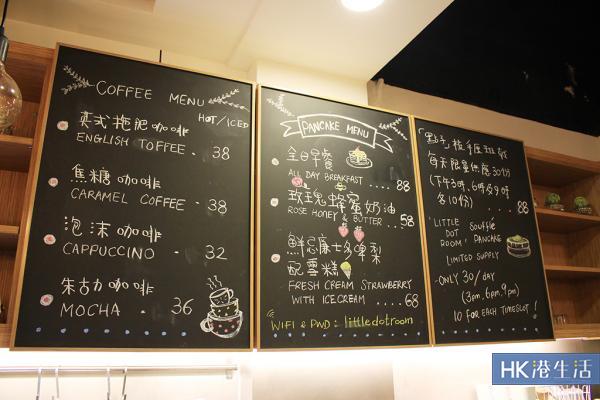 COFFEE MENU
HOT/ICED
英式拖肥咖啡
ENGLISH TOFFEE . 38
焦糖咖啡
CARAMEL COFFEE . 38
泡沫咖啡
CAPPUCCINO . 32
朱古力咖啡
MOCHA . 36
PANCAKE MENU
全日早餐
ALL DAY BREAKFAST .... 88
玫瑰蜂蜜奶油
ROSE HONEY & BUTTER ... 58
鮮忌廉士多啤梨
配雪糕
FRESH CREAM STRAWBERRY
WITH ICECREAM .... 68
WIFI & PWD : littledotroom
每天限量供應30份
(下午3時,6時及9時
各10份) ..... 88
"LITTLE
DOT Soufflé
ROOM" PANCAKE
LIMITED SUPPLY
-ONLY 30/day
(3pm, 6pm, 9pm)
10 FOR EACH TIMESLOT!
HK港生活